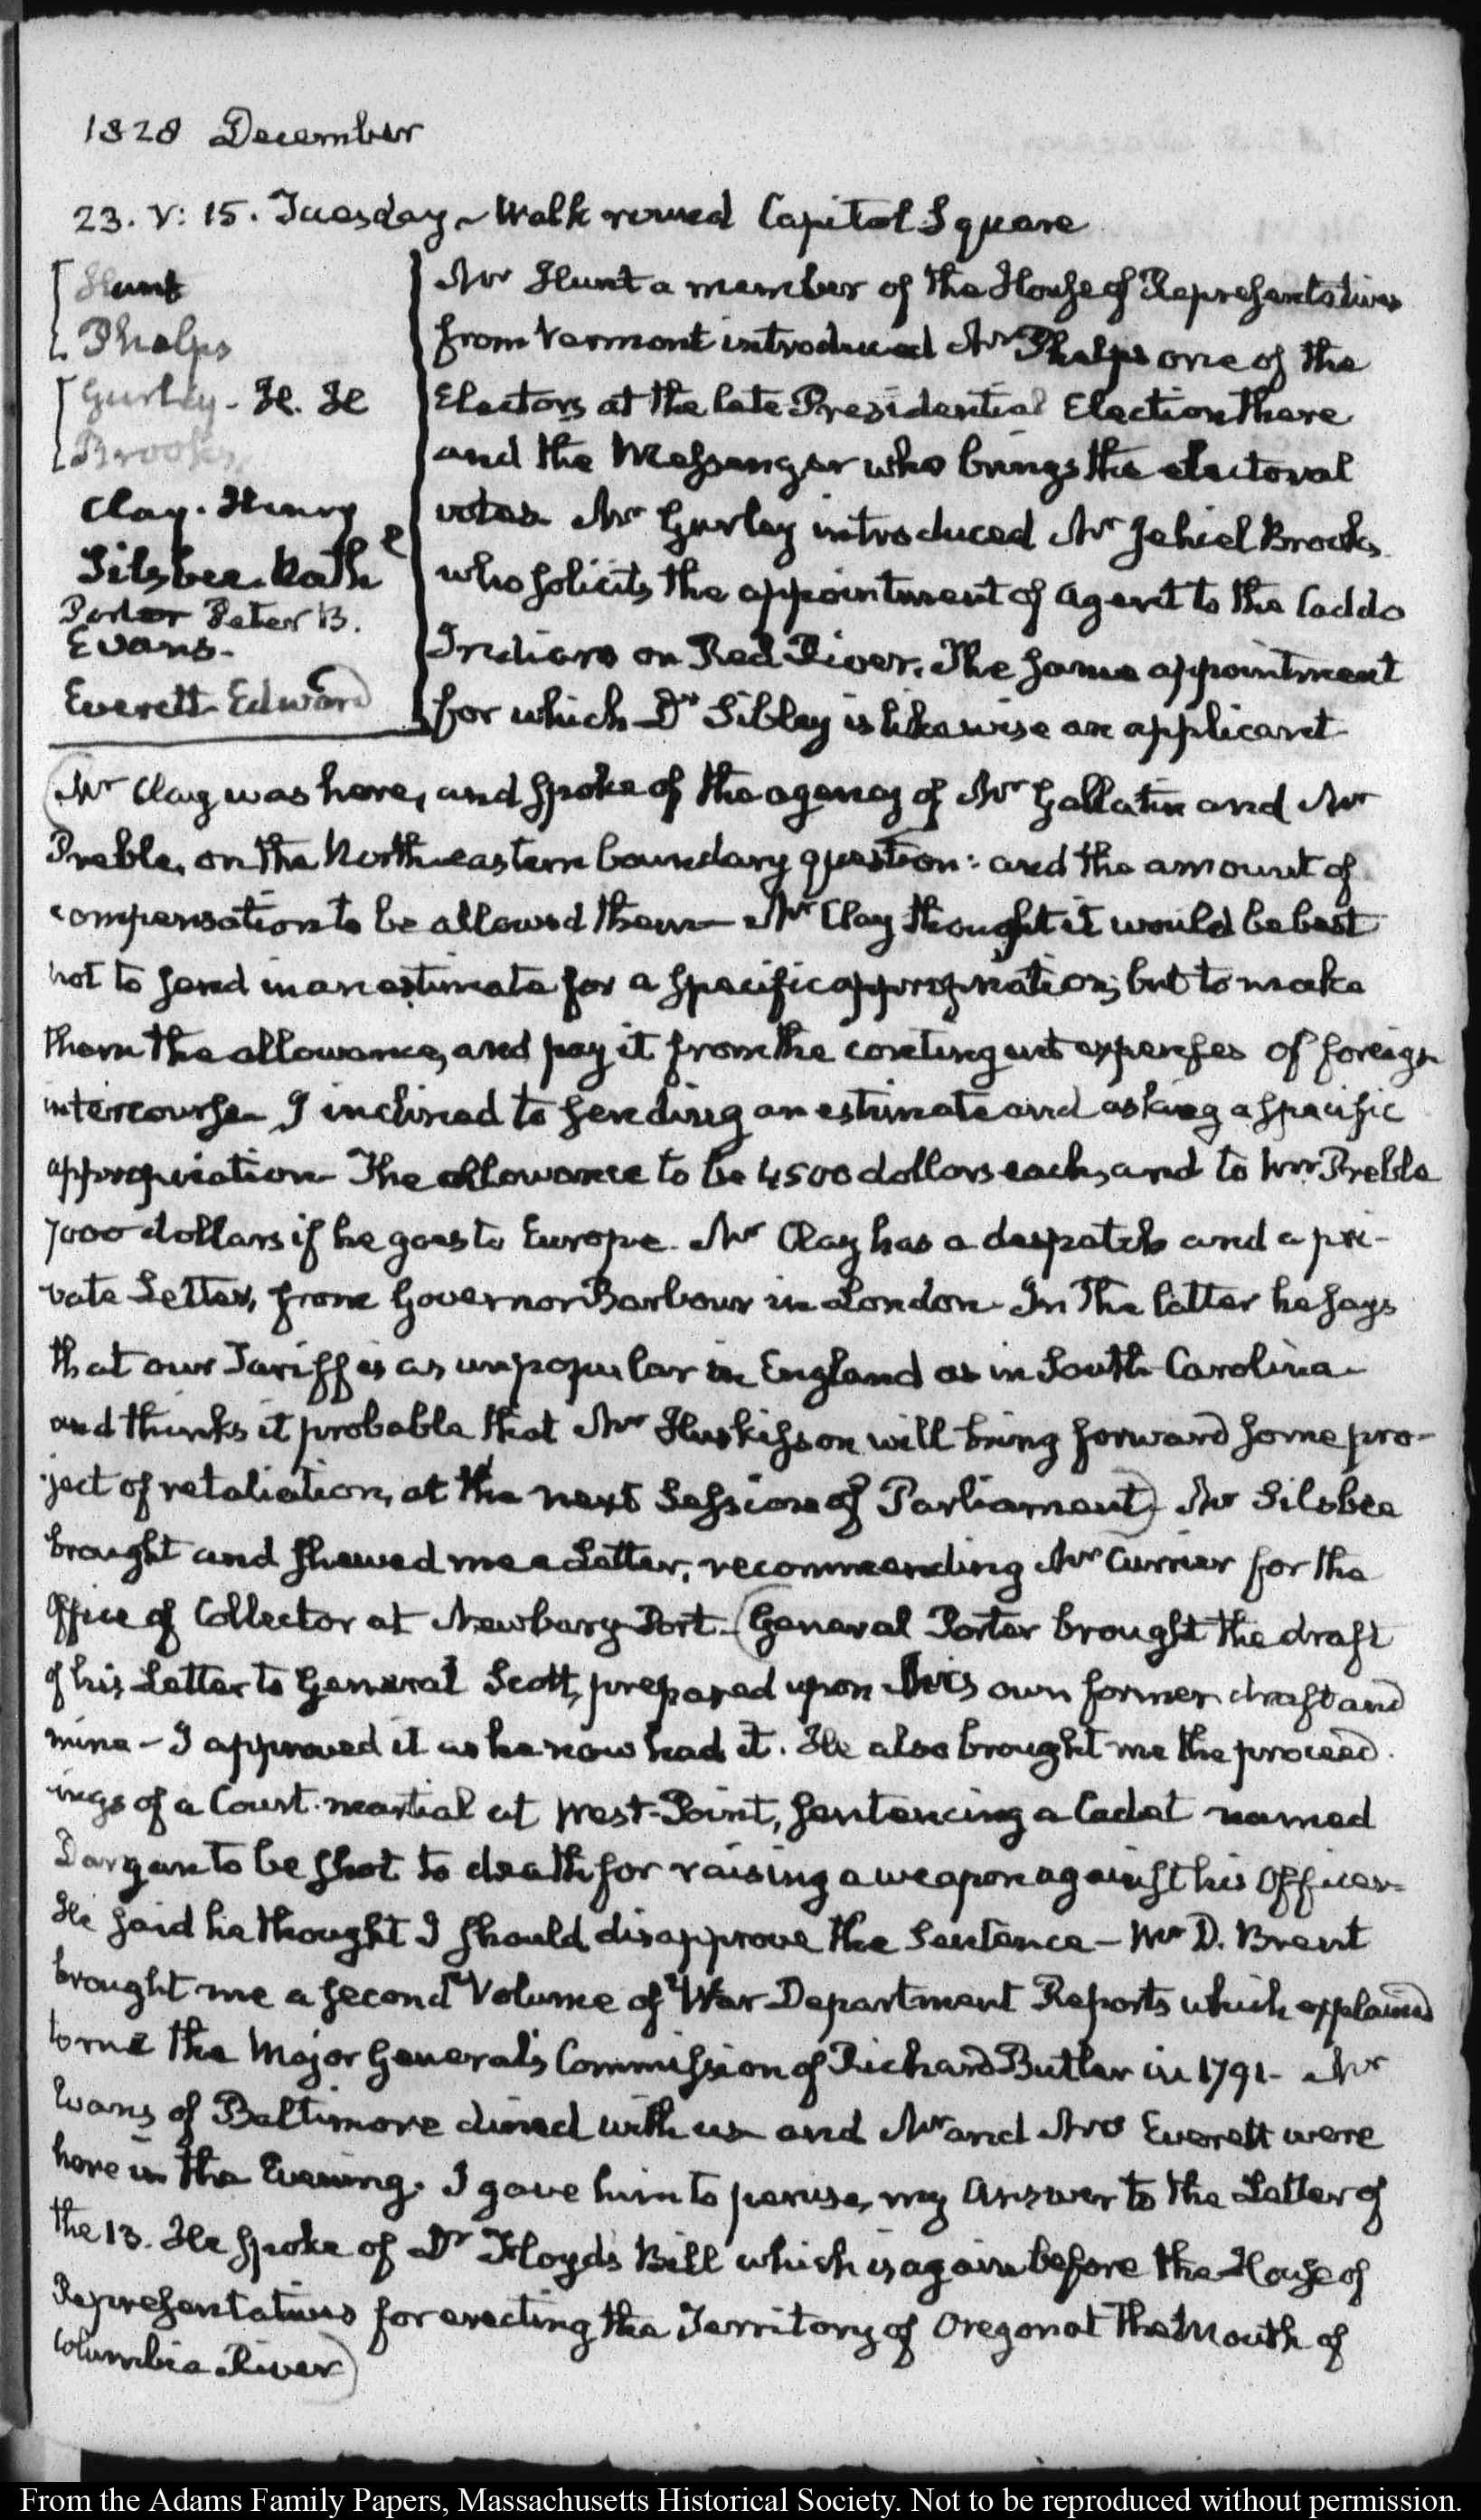 1828 December
23. V: 15. Tuesday ~ Walk round Capitol Square
Hunt
Phelps
Gurley - H. H
Brooks
Clay. Henry
Silsbee. Nathl
Porter Peter B.
Evans -
Everett - Edward
Mr Hunt a member of the House of Representatives
from Vermont introduced Mr Phelps one of the
Electors at the late Presidential Election there
and the Messenger who brings the electoral
votes. Mr Gurley introduced Mr Jehiel Brooks
who solicits the appointment of Agent to the Caddo
Indians on Red River. The same appointment
for which Dr Sibley is likewise an applicant-
Mr Clay was here, and spoke of the agency of Mr Gallatin and Mr
Preble, on the North-eastern boundary question: and the amount of
compensation to be allowed them - Mr Clay thought it would be best
not to send in an estimate for a specific appropriation; but to make
them the allowance, and pay it from the contingent expenses of foreign
intercourse. I inclined to sending an estimate and asking a specific
appropriation - The allowance to be 4500 dollars each, and to Mr Preble
7000 dollars if he goes to Europe. Mr Clay has a despatch and a pri-
vate Letter, from Governor Barbour in London - In the latter he says
that our Tariff is as unpopular in England as in South-Carolina -
and thinks it probable that Mr Huskisson will bring forward some pro-
ject of retaliation, at the next Session of Parliament) Mr Silsbee
brought and shewed me a Letter, recommending Mr Currier for the
Office of Collector at Newbury-Port - (General Porter brought the draft
of his Letter to General Scott, prepared upon his own former draft and
mine - I approved it as he now had it. He also brought me the proceed-
ings of a Court-martial at West-Point, sentencing a Cadet named
Dargan to be shot to death for raising a weapon against his Officer -
He said he thought I should disapprove the Sentence - Mr D. Brent
brought me a second Volume of War Department Reports which explained
to me the Major General's Commission of Richard Butler in 1791 - Mr
Evans of Baltimore dined with us and Mr and Mrs Everett were
here in the Evening. I gave him to peruse, my Answer to the Letter of
the 13. He spoke of Dr Floyd's Bill which is again before the House of
Representatives for erecting the Territory of Oregon at the Mouth of
Columbia River)
From the Adams Family Papers, Massachusetts Historical Society. Not to be reproduced without permission.